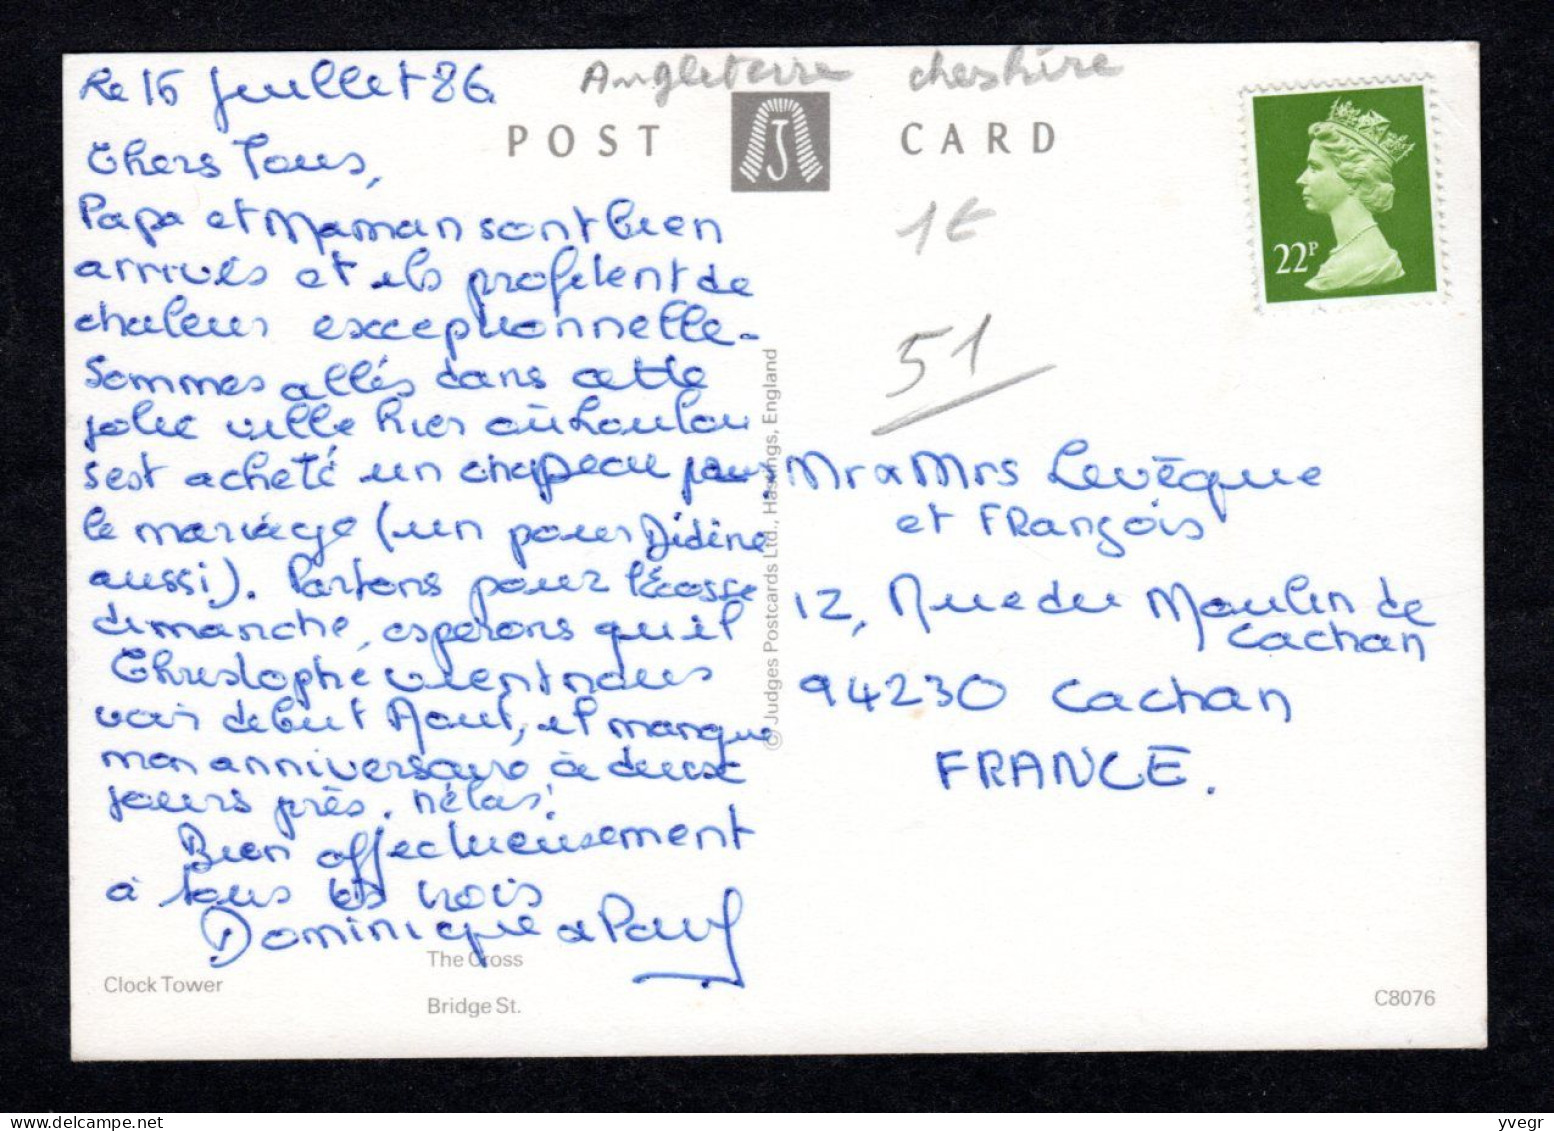 Le 15 Juillet 86.
Chers Tous,
Papa et Maman sont bien
arrivés et ils profitent de
chaleur exceptionnelle -
Sommes allés dans cette
jolie ville hier où Loulou
s'est acheté un chapeau pour
le mariage (un pour Didine
aussi). Partons pour l'Ecosse
dimanche, espérons qu'il
Christophe vient nous
voir début Aout, il manque
mon anniversaire à deux
jours près. hélas!
Bien affectueusement
à tous les trois
Dominique & Paul
The Cross
Clock Tower
Bridge St.
Angleterre cheshire
POST CARD
J
22P
1€
51
© Judges Postcards Ltd., Hastings, England
Mr & Mrs Levêque
et François
12, Rue du Moulin de
Cachan
94230 Cachan
FRANCE.
C8076
yvegr